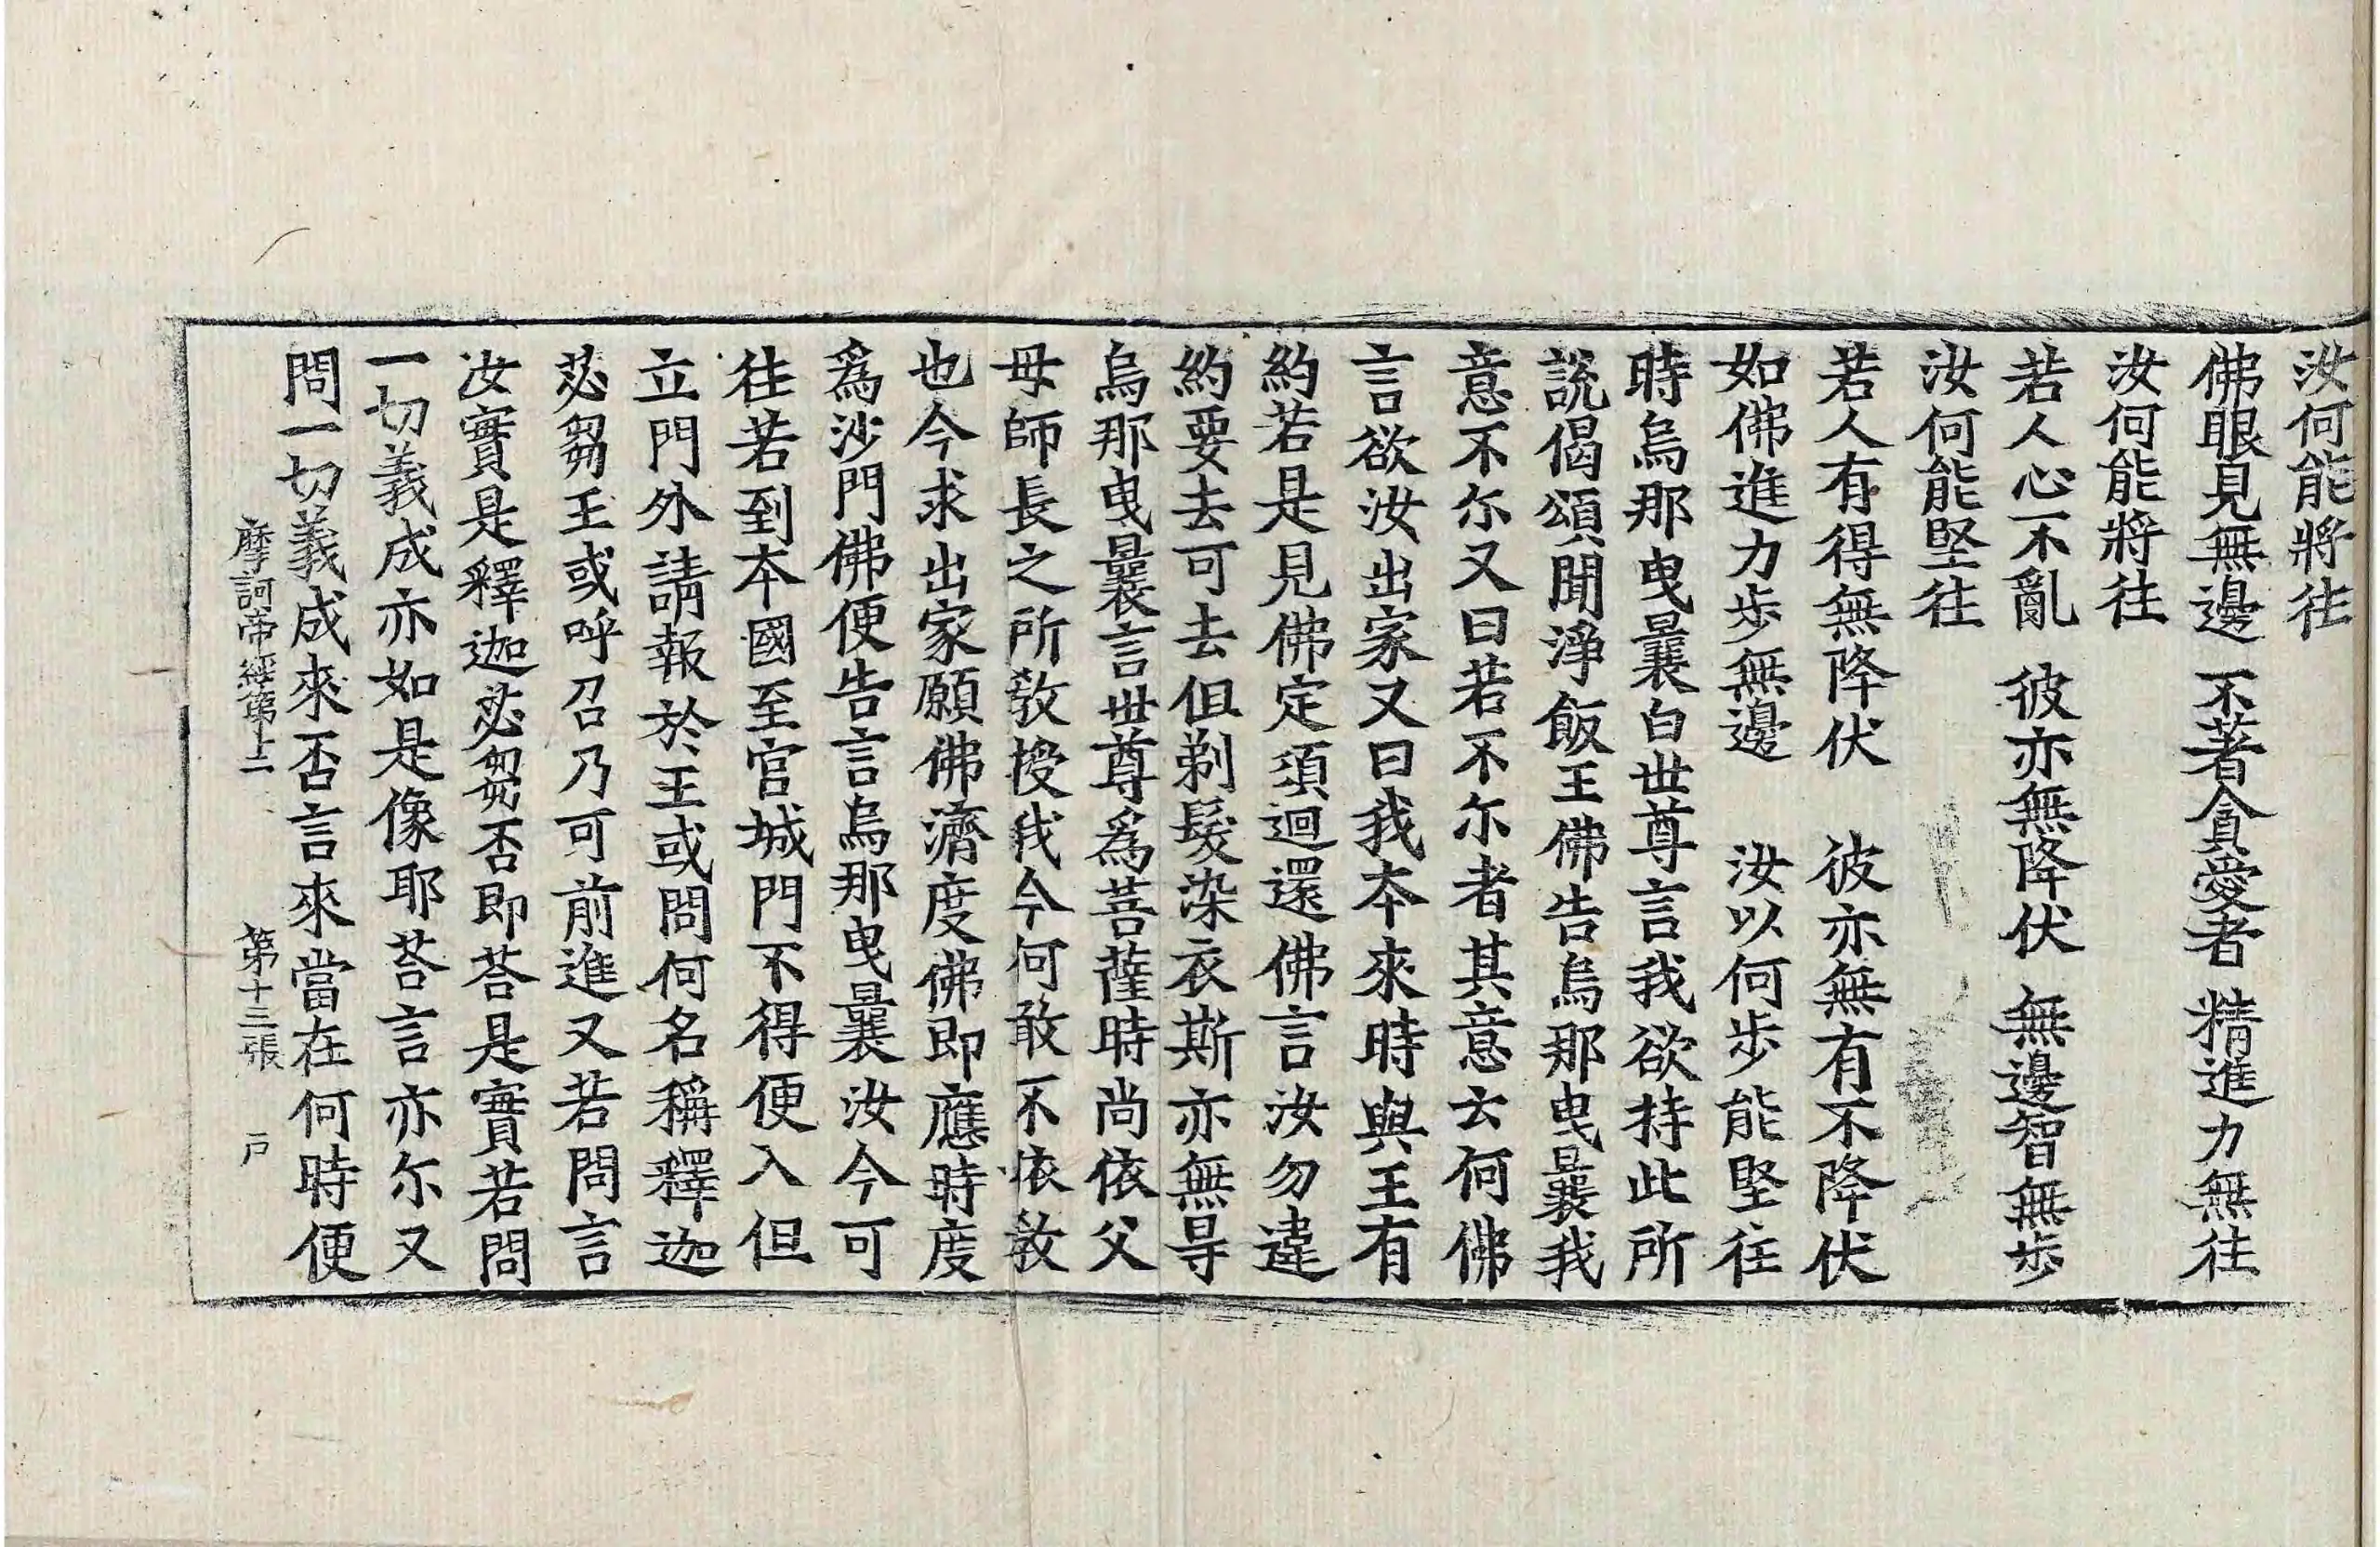 汝何能將往
佛眼見無邊　不著貪愛者　精進力無往
汝何能將往
若人心不亂　彼亦無降伏　無邊智無步
汝何能堅往
若人有得無降伏　彼亦無有不降伏
如佛進力步無邊　汝以何步能堅往
時烏那曳曩白世尊言我欲持此所
說偈頌聞淨飯王佛告烏那曳曩我
意不尓又曰若不尓者其意云何佛
言欲汝出家又曰我本來時與王有
約若是見佛定須迴還佛言汝勿違
約要去可去但剃髮染衣斯亦無㝵
烏那曳曩言世尊爲菩薩時尚依父
母師長之所教授我今何敢不依教
也今求出家願佛濟度佛即應時度
爲沙門佛便告言烏那曳曩汝今可
往若到本國至官城門不得便入但
立門外請報於王或問何名稱釋迦
苾芻王或呼召乃可前進又若問言
汝實是釋迦苾芻否即荅是實若問
一切義成亦如是像耶荅言亦尓又
問一切義成來否言來當在何時便
摩訶帝經第十二　第十三張　戸